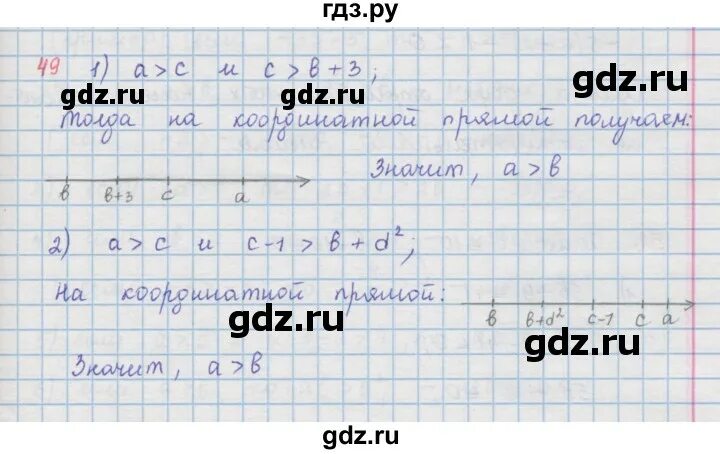 гдз.ру
49 1) a > c и c > b + 3 ;
gdz.ru gdz.ru
Тогда на координатной прямой получаем:
Значит, a > b
b b+3 c a
2) a > c и c-1 > b + d² ;
На координатной прямой:
b b+d² c-1 c a
gdz.ru gdz.ru
Значит, a > b
gdz.ru